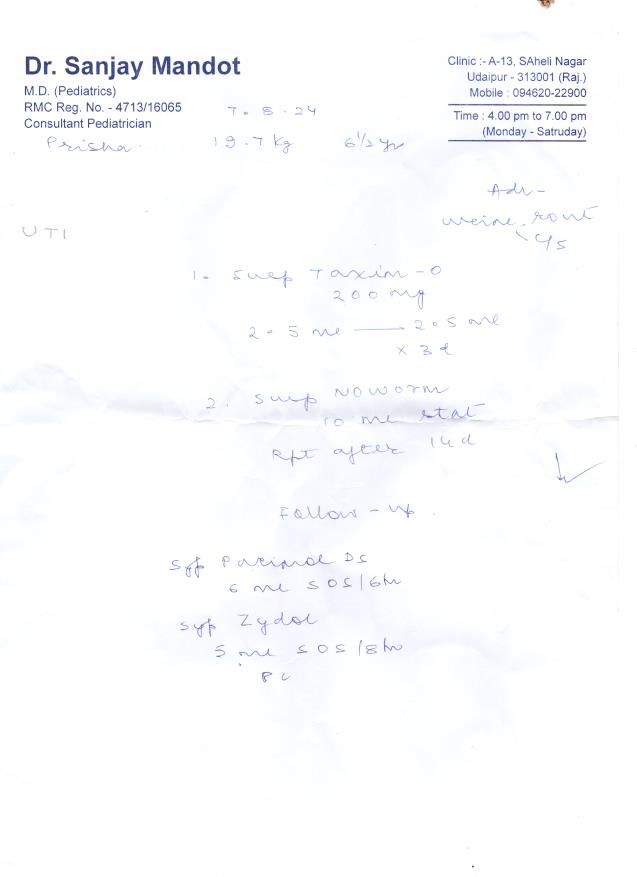 Dr. Sanjay Mandot
M.D. (Pediatrics)
RMC Reg. No. - 4713/16065
Consultant Pediatrician
Clinic :- A-13, SAheli Nagar
Udaipur - 313001 (Raj.)
Mobile : 094620-22900
Time : 4.00 pm to 7.00 pm
(Monday - Satruday)
7.8.24
Prisha 19.7 kg 6 1/2 yr
Adv -
urine rout
c/s
UTI
1. Syrp Taxim-O
200 mg
2.5 ml — 2.5 ml
x 3d
2. Syrp NOworm
10 ml stat
Rpt after 14d
Follow-up.
Syp Pacimol DS
6 ml SOS/6hr
Syp Zydol
5 ml SOS/8hr
PC